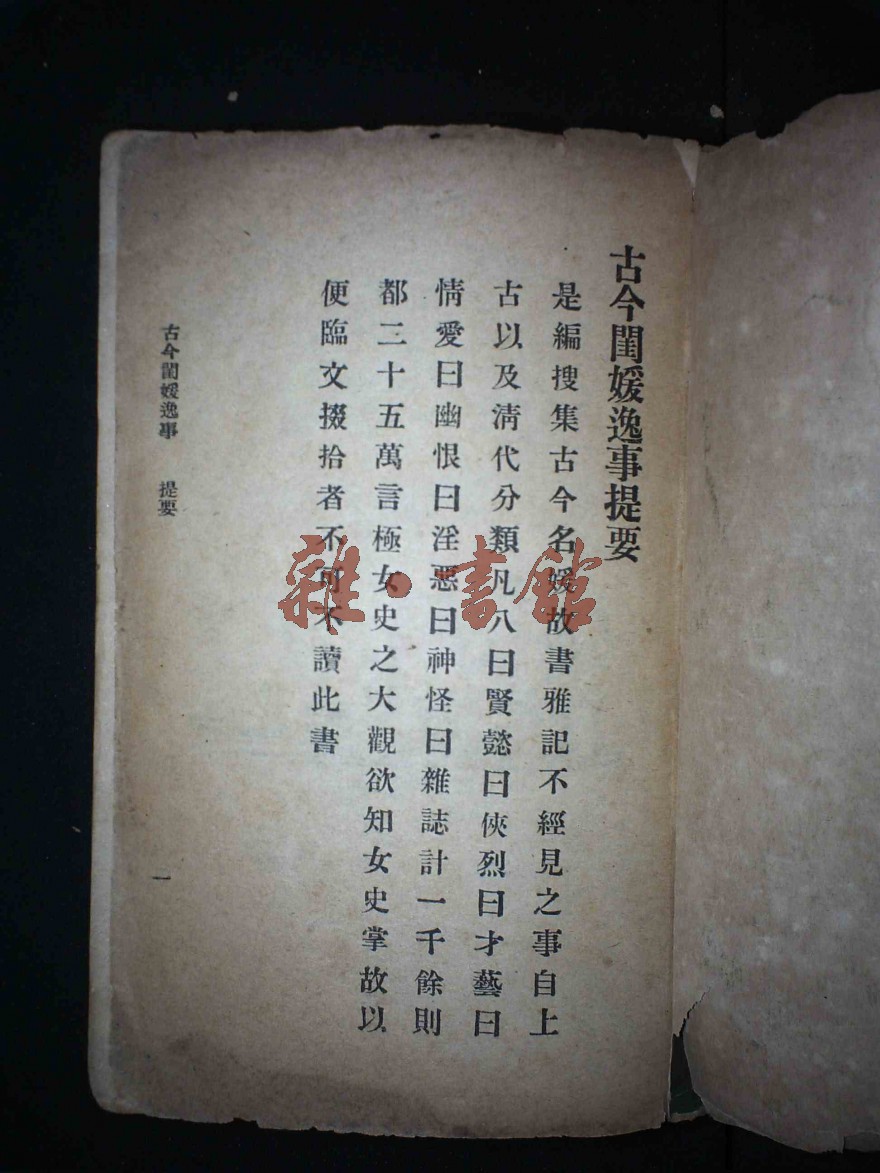 古今閨媛逸事提要
是編搜集古今名媛故書雅記不經見之事自上
古以及淸代分類凡八曰賢懿曰俠烈曰才藝曰
情愛曰幽恨曰淫惡曰神怪曰雜誌計一千餘則
都三十五萬言極女史之大觀欲知女史掌故以
便臨文掇拾者不可不讀此書
古今閨媛逸事 提要
一
雜·書館